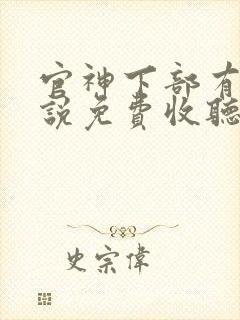 官神下部有
說免費收聽
史宗偉